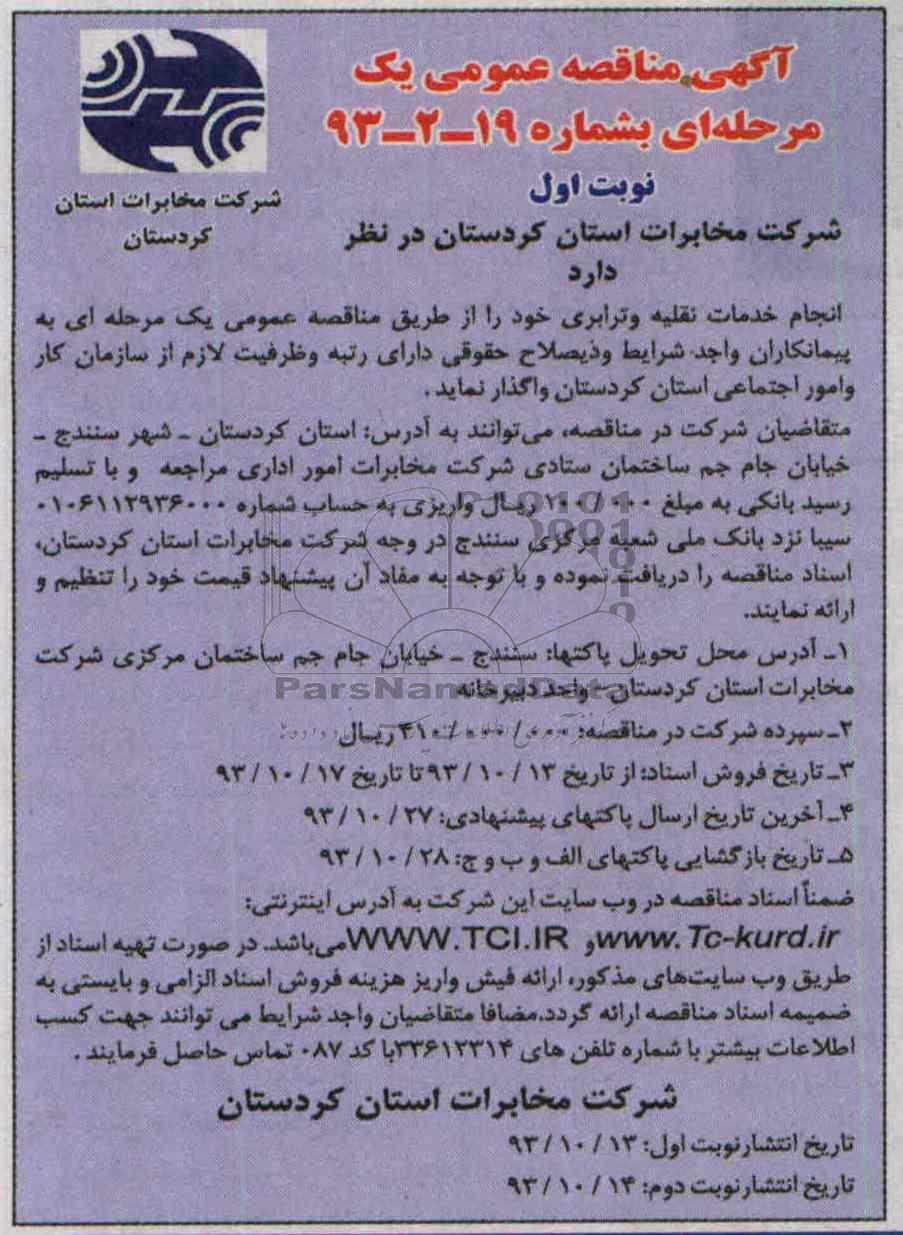 آگهی مناقصه عمومی یک
مرحله‌ای بشماره ۱۹ـ۲ـ۹۳
نوبت اول
شرکت مخابرات استان
کردستان
شرکت مخابرات استان کردستان در نظر
دارد
انجام خدمات نقلیه وترابری خود را از طریق مناقصه عمومی یک مرحله ای به
پیمانکاران واجد شرایط وذیصلاح حقوقی دارای رتبه وظرفیت لازم از سازمان کار
وامور اجتماعی استان کردستان واگذار نماید.
متقاضیان شرکت در مناقصه، می‌توانند به آدرس: استان کردستان ـ شهر سنندج ـ
خیابان جام جم ساختمان ستادی شرکت مخابرات امور اداری مراجعه و با تسلیم
رسید بانکی به مبلغ ۲۰۰/۰۰۰ ریال واریزی به حساب شماره ۰۱۰۶۱۱۲۹۳۶۰۰۰
سیبا نزد بانک ملی شعبه مرکزی سنندج در وجه شرکت مخابرات استان کردستان،
اسناد مناقصه را دریافت نموده و با توجه به مفاد آن پیشنهاد قیمت خود را تنظیم و
ارائه نمایند.
۱ـ آدرس محل تحویل پاکتها: سنندج ـ خیابان جام جم ساختمان مرکزی شرکت
مخابرات استان کردستان ـ واحد دبیرخانه
ParsNamadData
۲ـ سپرده شرکت در مناقصه: ۴۱۰/۰۰۰/۰۰۰ ریال
۳ـ تاریخ فروش اسناد: از تاریخ ۹۳/۱۰/۱۳ تا تاریخ ۹۳/۱۰/۱۷
۴ـ آخرین تاریخ ارسال پاکتهای پیشنهادی: ۹۳/۱۰/۲۷
۵ـ تاریخ بازگشایی پاکتهای الف و ب و ج: ۹۳/۱۰/۲۸
ضمناً اسناد مناقصه در وب سایت این شرکت به آدرس اینترنتی:
www.Tc-kurd.ir و WWW.TCI.IR می‌باشد. در صورت تهیه اسناد از
طریق وب سایت‌های مذکور، ارائه فیش واریز هزینه فروش اسناد الزامی و بایستی به
ضمیمه اسناد مناقصه ارائه گردد.مضافا متقاضیان واجد شرایط می توانند جهت کسب
اطلاعات بیشتر با شماره تلفن های ۳۳۶۱۲۳۱۴با کد ۰۸۷ تماس حاصل فرمایند.
شرکت مخابرات استان کردستان
تاریخ انتشارنوبت اول: ۹۳/۱۰/۱۳
تاریخ انتشارنوبت دوم: ۹۳/۱۰/۱۴